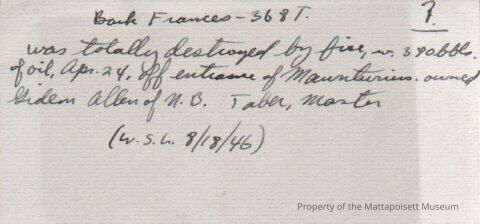 Bark Frances - 368 T.
7.
was totally destroyed by fire, w. 380 bbls.
of oil, Apr. 24, off entrance of Mauritius. owned
Gideon Allen of N.B. Taber, Master
(W.S.L. 8/18/46)
Property of the Mattapoisett Museum